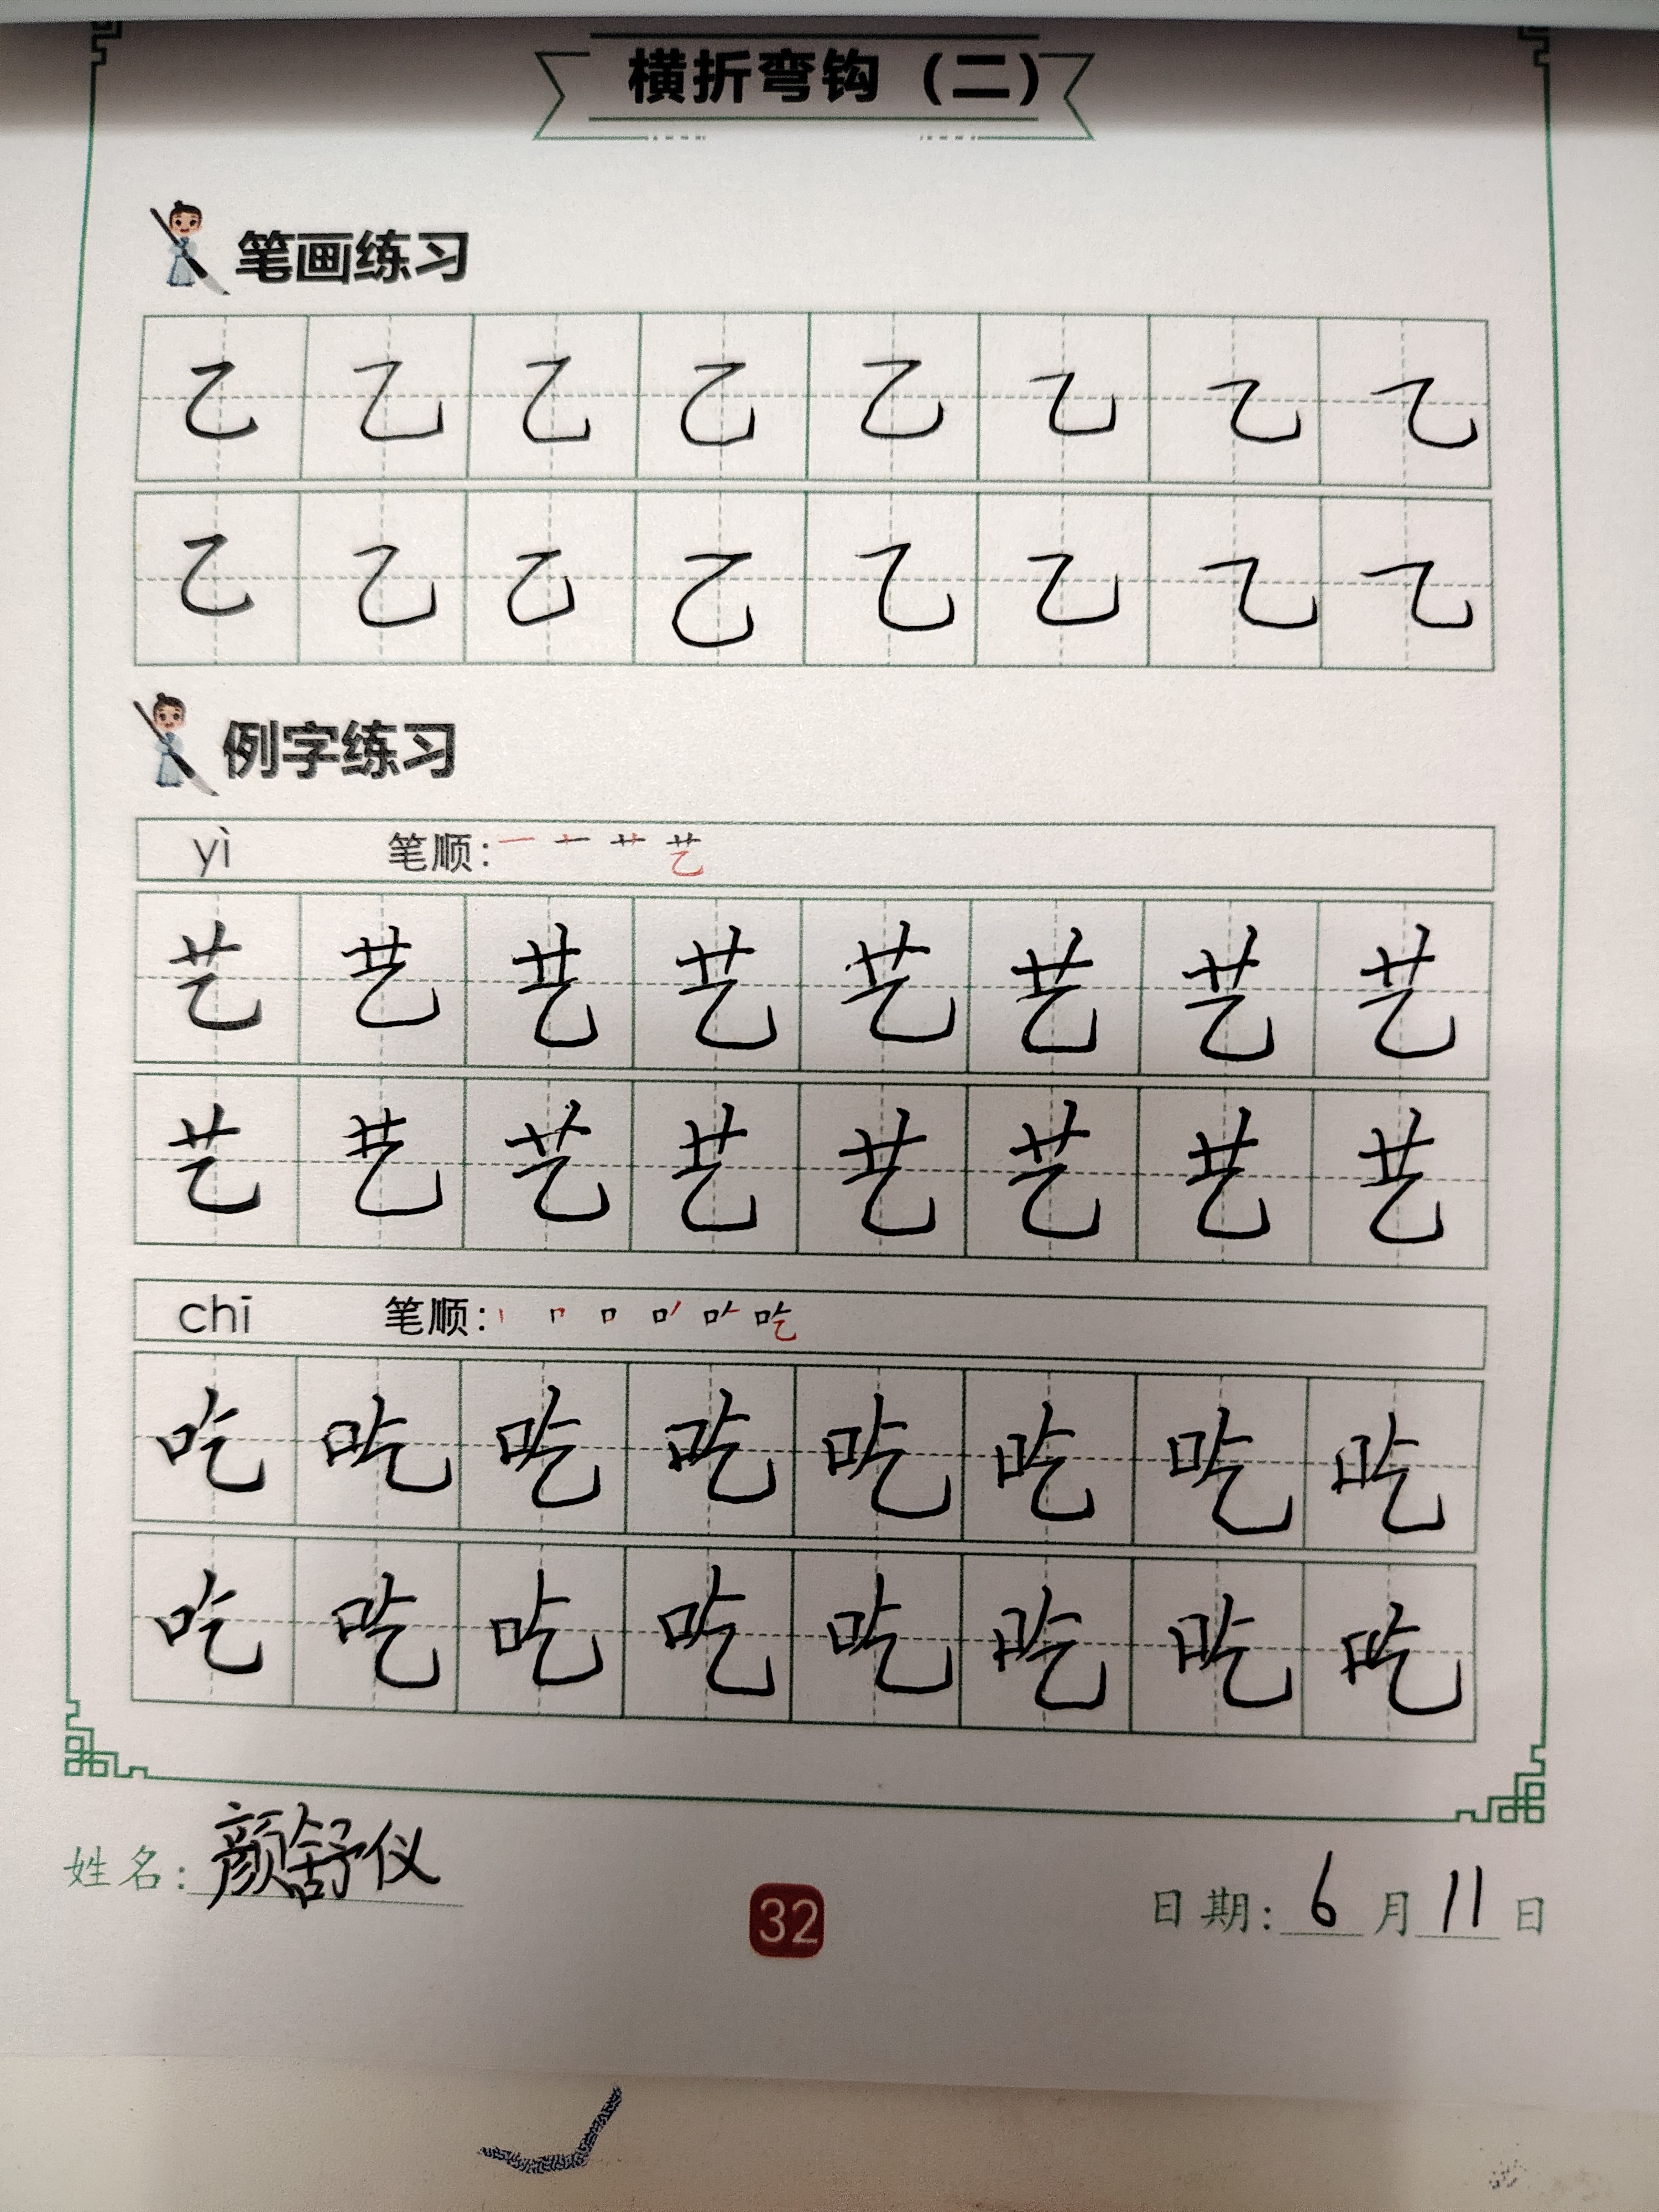 横折弯钩（二）
笔画练习
乙 乙 乙 乙 乙 乙 乙 乙
乙 乙 乙 乙 乙 乙 乙 乙
例字练习
yì 笔顺：一 十 艹 艺
艺 艺 艺 艺 艺 艺 艺 艺
艺 艺 艺 艺 艺 艺 艺 艺
chī 笔顺：丨 𠃍 口 吃
吃 吃 吃 吃 吃 吃 吃 吃
吃 吃 吃 吃 吃 吃 吃 吃
姓名：颜舒仪
32
日期：6月11日